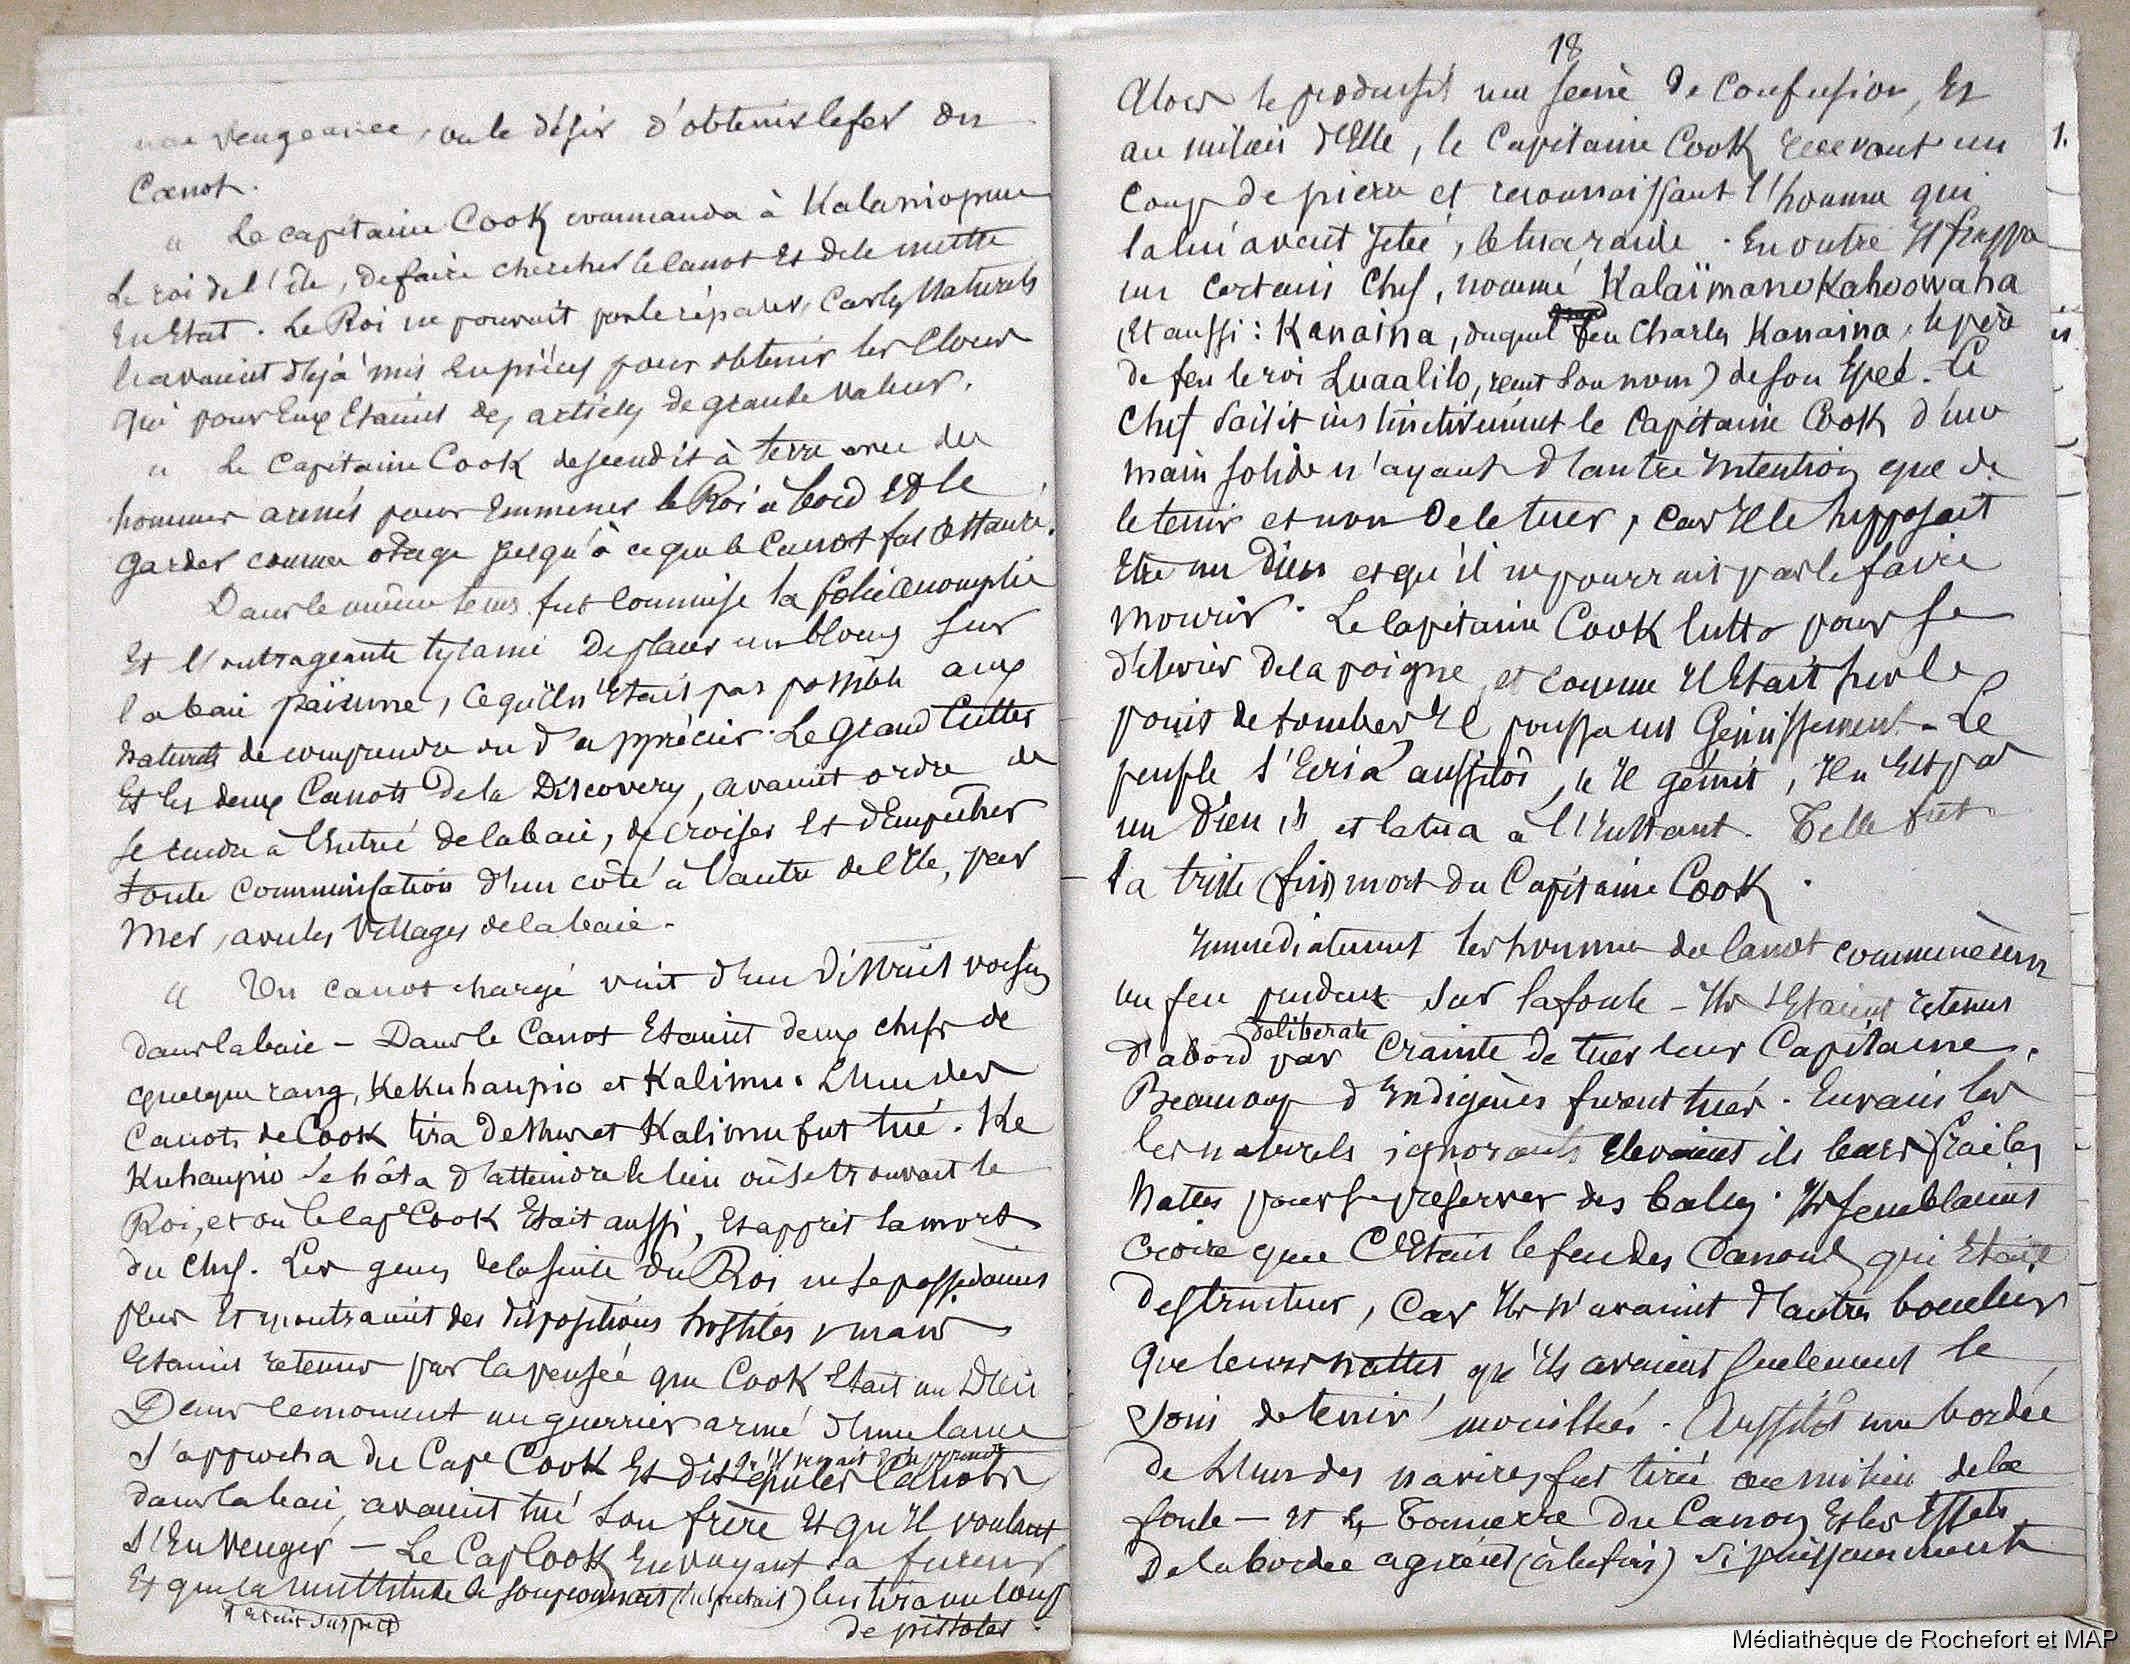 une vengeance, ou le désir d'obtenir le fer du
Canot.
" Le capitaine Cook commanda à Kalaniopuu
Le roi de l'île, de faire chercher le canot Et de le mettre
En Etat. Le Roi ne pouvait pas le réparer, Car les Naturels
l'avaient déjà mis en pièces pour obtenir les Clous
qui pour Eux Etaient des articles de grande valeur.
" Le Capitaine Cook descendit à terre avec des
hommes armés pour Emmener le Roi à bord Et le
Garder comme otage jusqu'à ce que le Canot fut restauré.
Dans le même tems fut commise la folie accomplie
Et l'outrageante tyrannie De placer un blocus sur
la baie païenne, Ce qu'il n'Etait pas possible aux
Naturels de comprendre ou d'apprécier. Le Grand Cutter
Et les deux Canots De la Discovery, avaient ordre de
se rendre à l'Entrée de la baie, de croiser Et d'Empêcher
toute communication d'un côté à l'autre de l'Ile, par
Mer, avec les Villages de la baie.
" Un canot chargé vint d'un District voisin
dans la baie - Dans le Canot Etaient deux chefs de
quelque rang, Kekuhaupio et Kalimu. L'un des
Canots de Cook tira Dessus et Kalimu fut tué. Ke
Kuhaupio se hâta d'atteindre le lieu où se trouvait le
Roi, et où le Cape Cook Etait aussi, Et apprit la mort
du Chef. Les gens de la suite du Roi ne se possédaient
plus Et montraient des dispositions hostiles, mais
Etaient retenus par la pensée que Cook Etait un Dieu
Dans ce moment un guerrier armé d'une lance
s'approcha du Cape Cook Et dit que les Canots
qu'il venait
dans la baie, avaient tué son frère Et qu'Il voulait
s'En Venger - Le Cap Cook En voyant sa fureur
Et que la multitude le soupçonnait (suspectait) lui tira un coup
Etait suspect
de pistolet.
18
Alors se produisit une scène de Confusion, Et
au milieu d'Elle, le Capitaine Cook recevant un
Coup de pierre et reconnaissant l'homme qui
la lui avait jetée, le tua raide. En outre Il frappa
un Certain Chef, nommé Kalaïmanokahoowaha
(Et aussi: Kanaina, duquel feu Charles Kanaina, le père
de feu le roi Luaalilo, reçut son nom) de son Epée. Ce
Chef saisit instinctivement le Capitaine Cook d'une
main solide n'ayant d'autre Intention que de
le tenir et non De le tuer, Car Il le supposait
Etre un Dieu et qu'il ne pourrait pas le faire
Mourir. Le Capitaine Cook lutta pour se
délivrer De la poigne, et comme Il Etait sur le
point de tomber Il poussa un Gémissement. Le
peuple s'Ecria aussitôt, "Il gémit, Il n'Est pas
un Dieu," et le tua à l'Instant. Telle fut
la triste (fin) mort du Capitaine Cook.
Immédiatement les hommes du Canot commencèrent
un feu prudent sur la foule - Ils s'Etaient retenus
deliberate
d'abord par Crainte de tuer leur Capitaine.
Beaucoup d'Indigènes furent tués. En vain les
les naturels ignorants Elevaient ils leurs frailes
Nattes pour se préserver des balles. Ils semblaient
Croire que C'Etait le feu des Canons qui Etait
Destructeur, Car Ils n'avaient d'autres boucliers
que leurs nattes qu'ils avaient seulement le
soin de tenir mouillées. Aussitôt une bordée
De l'un des navires fut tirée au milieu de la
foule - Et le Tonnerre Du Canon Et les Effets
De la bordée agirent (à la fin) si puissamment